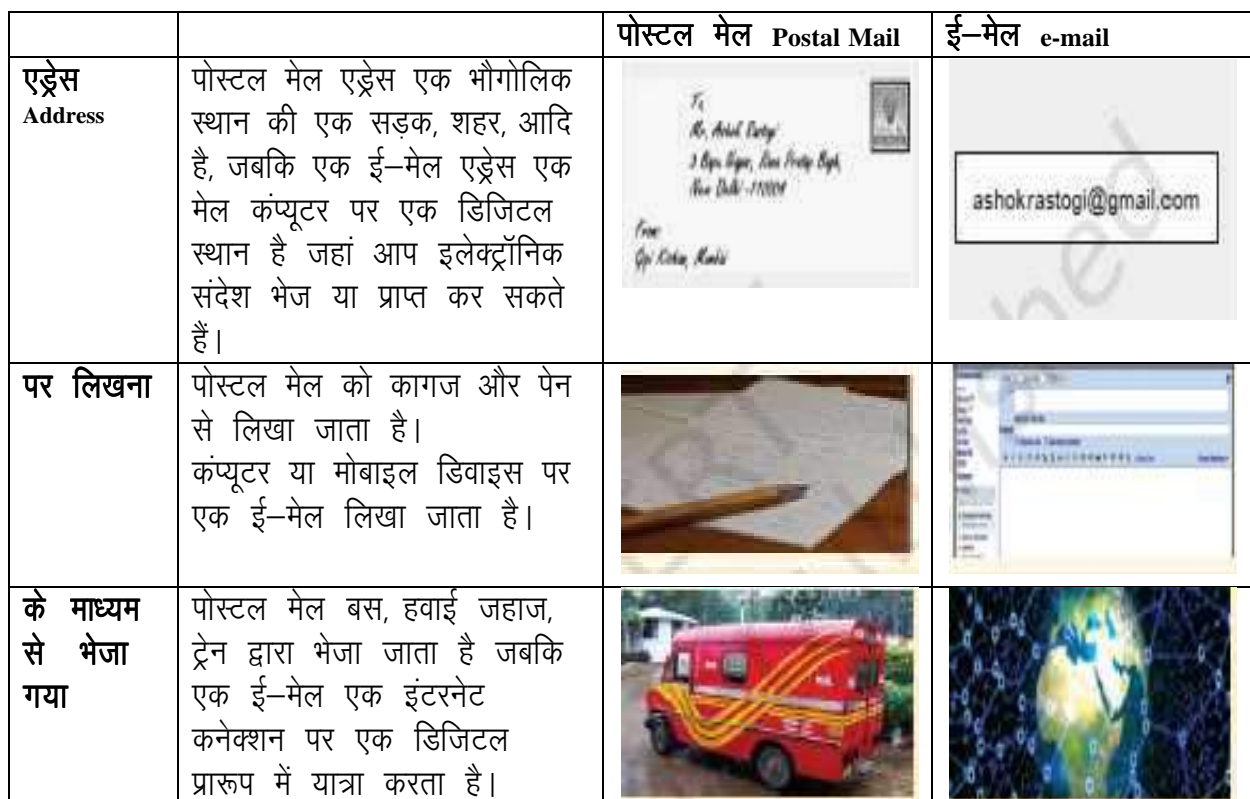 पोस्टल मेल Postal Mail
ई–मेल e-mail
एड्रेस
Address
पोस्टल मेल एड्रेस एक भौगोलिक
स्थान की एक सड़क, शहर, आदि
है, जबकि एक ई–मेल एड्रेस एक
मेल कंप्यूटर पर एक डिजिटल
स्थान है जहां आप इलेक्ट्रॉनिक
संदेश भेज या प्राप्त कर सकते
हैं।
To,
Mr. Ashok Rastogi
New Delhi -110009
From:
Gopi Kishan, Mumbai
ashokrastogi@gmail.com
पर लिखना
पोस्टल मेल को कागज और पेन
से लिखा जाता है।
कंप्यूटर या मोबाइल डिवाइस पर
एक ई–मेल लिखा जाता है।
के माध्यम
से भेजा
गया
पोस्टल मेल बस, हवाई जहाज,
ट्रेन द्वारा भेजा जाता है जबकि
एक ई–मेल एक इंटरनेट
कनेक्शन पर एक डिजिटल
प्रारूप में यात्रा करता है।